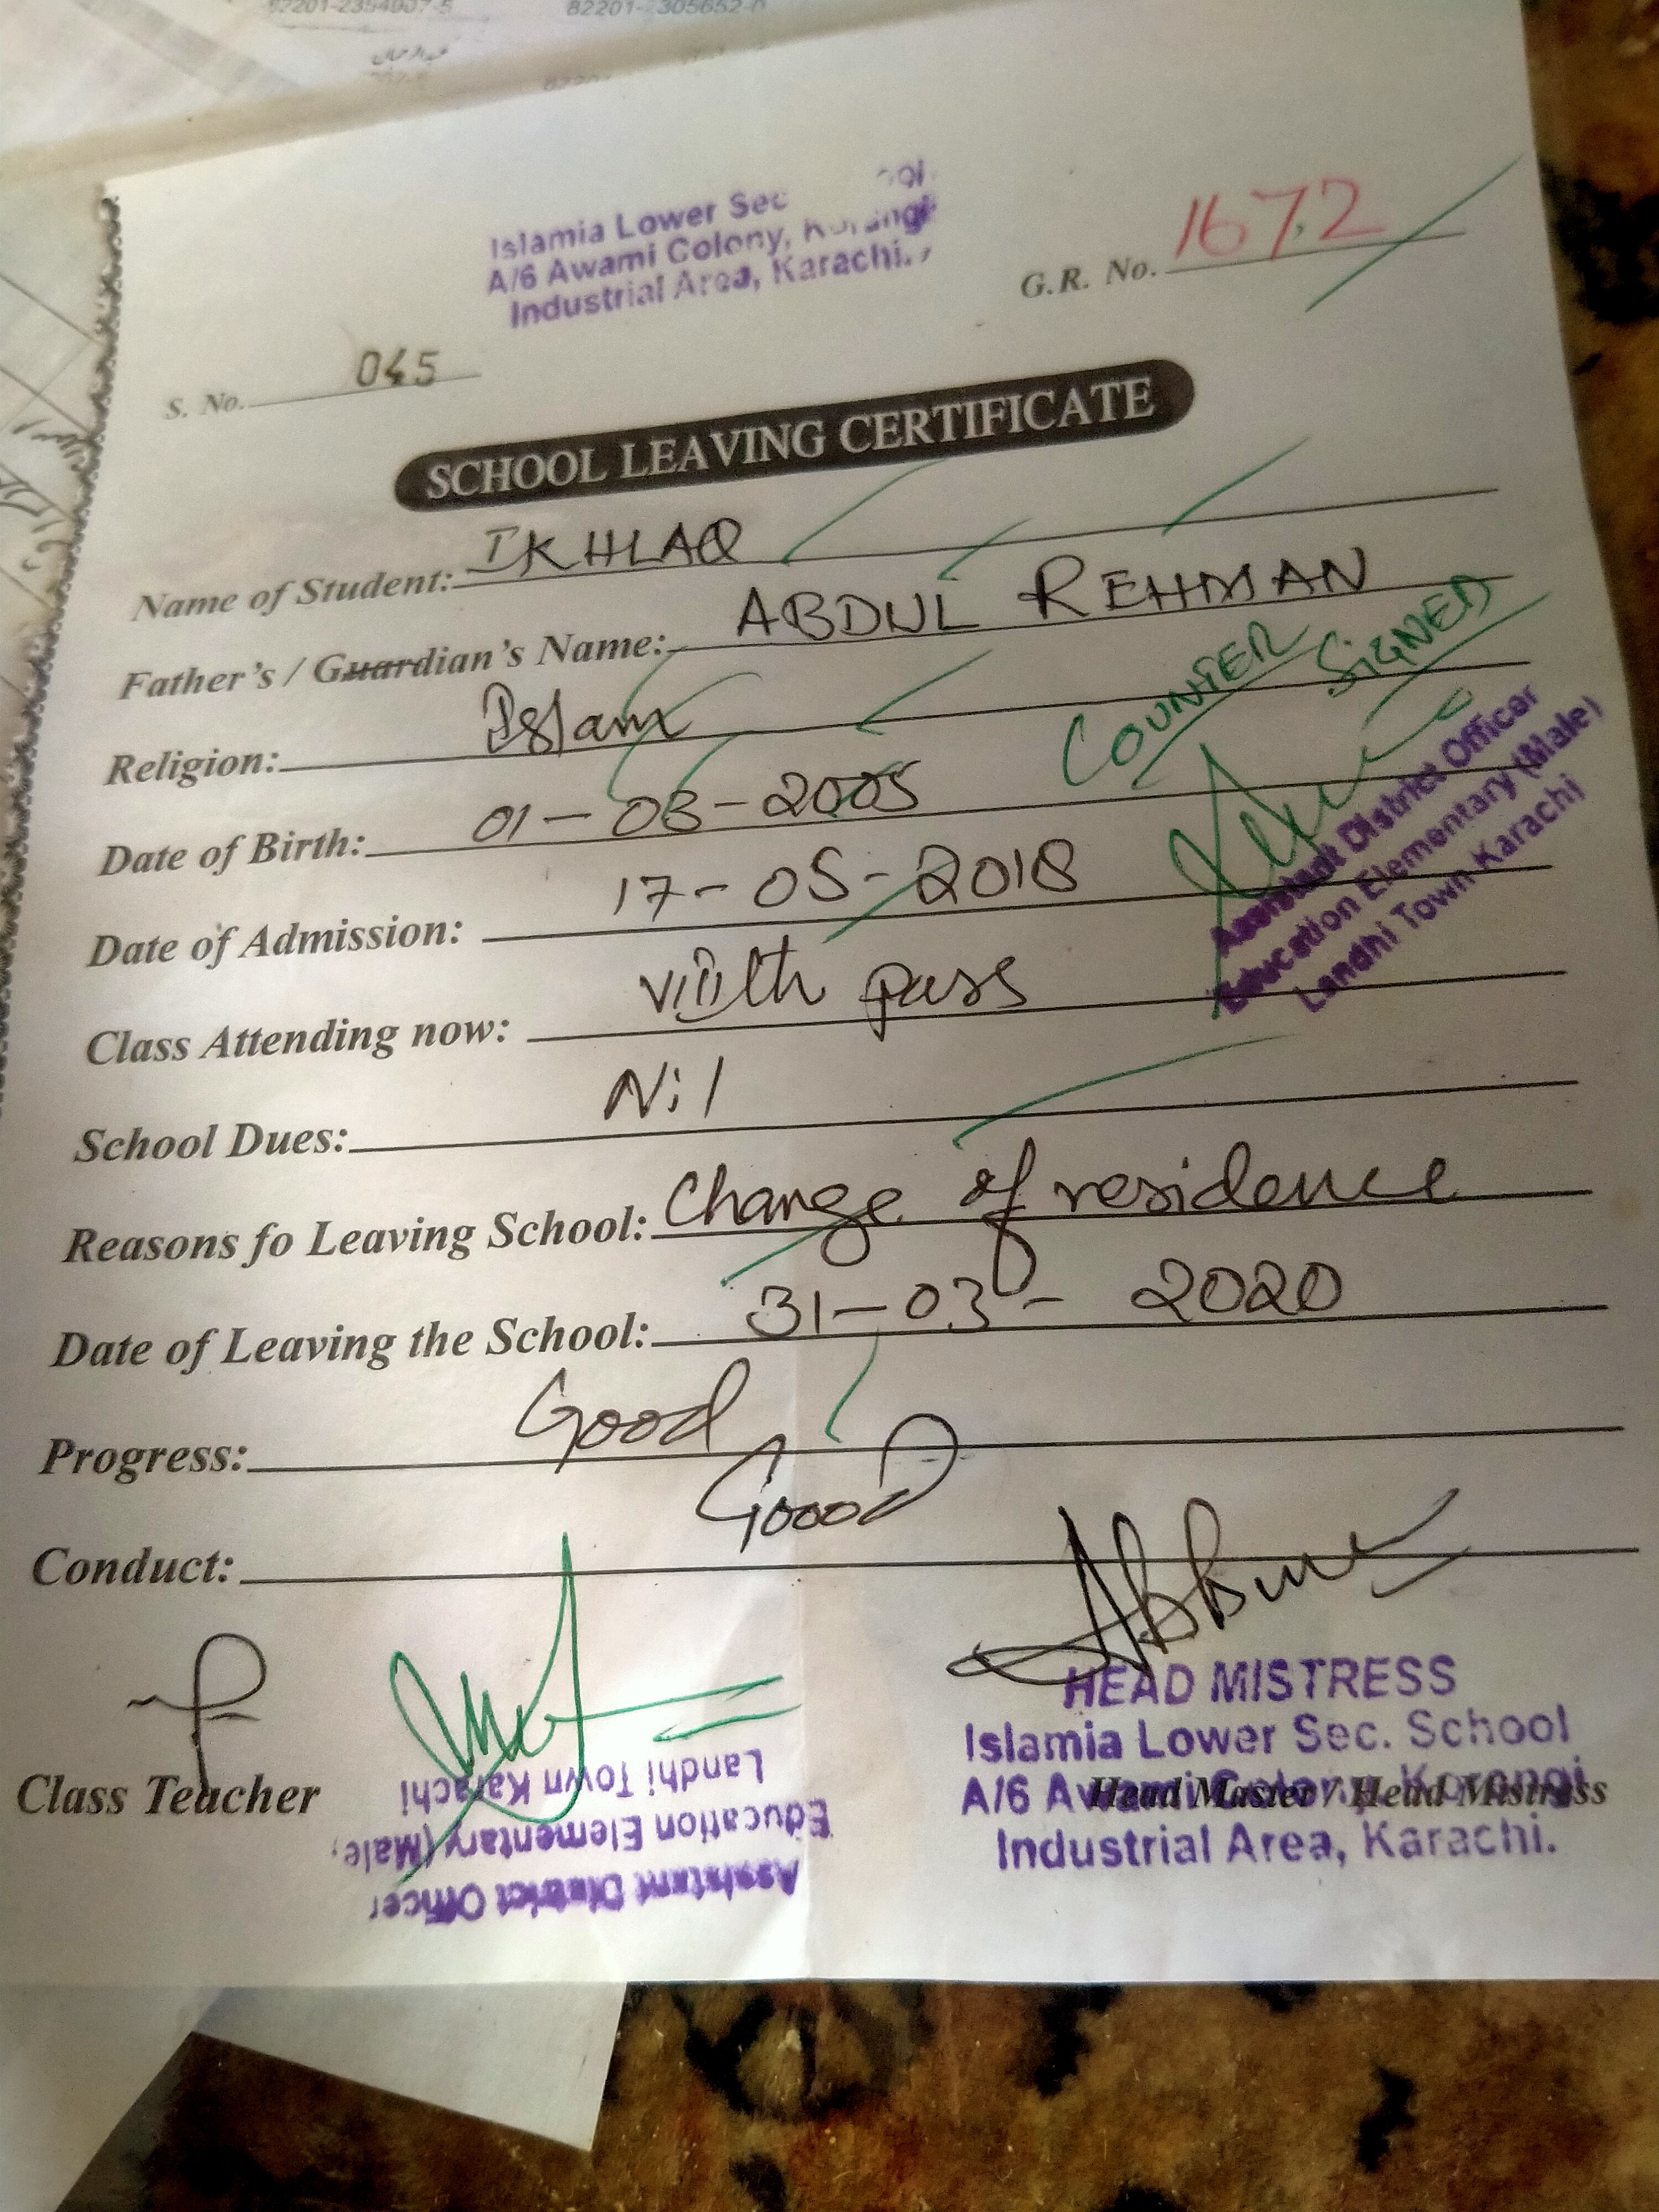 82201-2354007-5
Islamia Lower Sec
A/6 Awami Colony, Korangi
Industrial Area, Karachi.
G.R. No. 1672
S. No. 045
SCHOOL LEAVING CERTIFICATE
Name of Student: IKHLAQ
Father's / Guardian's Name: ABDUL REHMAN
COUNTER SIGNED
Religion: Islam
Date of Birth: 01-03-2005
Assistant District Officer
Education Elementary (Male)
Landhi Town Karachi
Date of Admission: 17-05-2018
Class Attending now: VIIIth pass
School Dues: Nil
Reasons fo Leaving School: Change of residence
Date of Leaving the School: 31-03- 2020
Progress: Good
Conduct: Good
Class Teacher
Assistant District Officer
Education Elementary (Male,
Landhi Town Karachi
HEAD MISTRESS
Islamia Lower Sec. School
A/6 Awami Colony, Korangi
Head Master / Head Mistress
Industrial Area, Karachi.